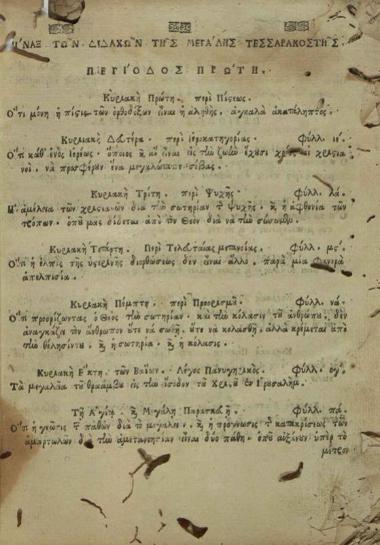 ΠΙΝΑΞ ΤΩΝ ΔΙΔΑΧΩΝ ΤΗΣ ΜΕΓΑΛΗΣ ΤΕΣΣΑΡΑΚΟΣΤΗΣ.
ΠΕΡΙΟΔΟΣ ΠΡΩΤΗ.
Κυριακὴ Πρώτη. περὶ Πίστεως.
Ὅτι μόνη ἡ πίστις τῶν ὀρθοδόξων εἶναι ἡ ἀληθὴς, ἀγκαλὰ ἀκατάληπτος.
Κυριακὴ Δευτέρα. περὶ ἱεροκατηγορίας. Φύλλ. ιε΄.
Ὅτι καθ' ἑνὸς Ἱερέως, ὁποῖος καὶ ἂν εἶναι εἰς τὴν ζωὴν ἔχουσι χρέος οἱ χριστια
νοὶ, νὰ προσφέρουν ἕνα μεγαλώτατον σέβας.
Κυριακὴ Τρίτη. περὶ Ψυχῆς. Φύλλ. λά.
Ἡ ἀμέλεια τῶν χριστιανῶν διὰ τὴν σωτηρίαν τῆς Ψυχῆς. καὶ ἡ ἀφθονία τῶν
τρόπων. ὁποῦ μας δίδεται ἀπὸ τὸν Θεὸν διὰ νὰ τὴν σώσωμεν.
Κυριακὴ Τετάρτη. Περὶ Τελευταίας μετανοίας. Φύλλ. μς΄.
Ὅτι ἡ ἐλπὶς τῆς ὑστερινῆς διορθώσεως δὲν εἶναι ἄλλο, παρὰ μία φανερὰ
ἀπελπισία.
Κυριακὴ Πέμπτη. περὶ Προορισμοῦ. Φύλλ. νά.
Ὅτι προορίζωντας ὁ Θεὸς τὴν σωτηρίαν καὶ τὴν κόλασιν τοῦ ἀνθρώπου, δὲν
ἀναγκάζει τὸν ἄνθρωπον οὔτε νὰ σωθῇ, οὔτε νὰ κολασθῇ, ἀλλὰ κρέμεται ἀπὸ
τὴν θέλησίν του, καὶ ἡ σωτηρία καὶ ἡ κόλασις.
Κυριακὴ Ἕκτη. τῶν Βαΐων. Λόγος Πανηγυρικὸς. Φύλλ. ογ΄.
Τὰ μεγαλεῖα τοῦ θριάμβου εἰς τὴν εἴσοδον τοῦ Χριστοῦ ἐν Ἱερουσαλήμ.
Τῇ Ἁγίᾳ καὶ Μεγάλῃ Παρασκευῇ. Φύλλ. πά.
Ὅτι ἡ γνῶσις τῶν παθῶν διὰ τὸ μεγαλεῖον. καὶ ἡ πρόγνωσις τῆς κατακρίσεως τῶν
ἁμαρτωλῶν διὰ τὴν ἀμετανοησίαν εἶναι δύο πάθη. ὁποῦ αὐξάνουν ὑπὲρ τὸ
μέτρον